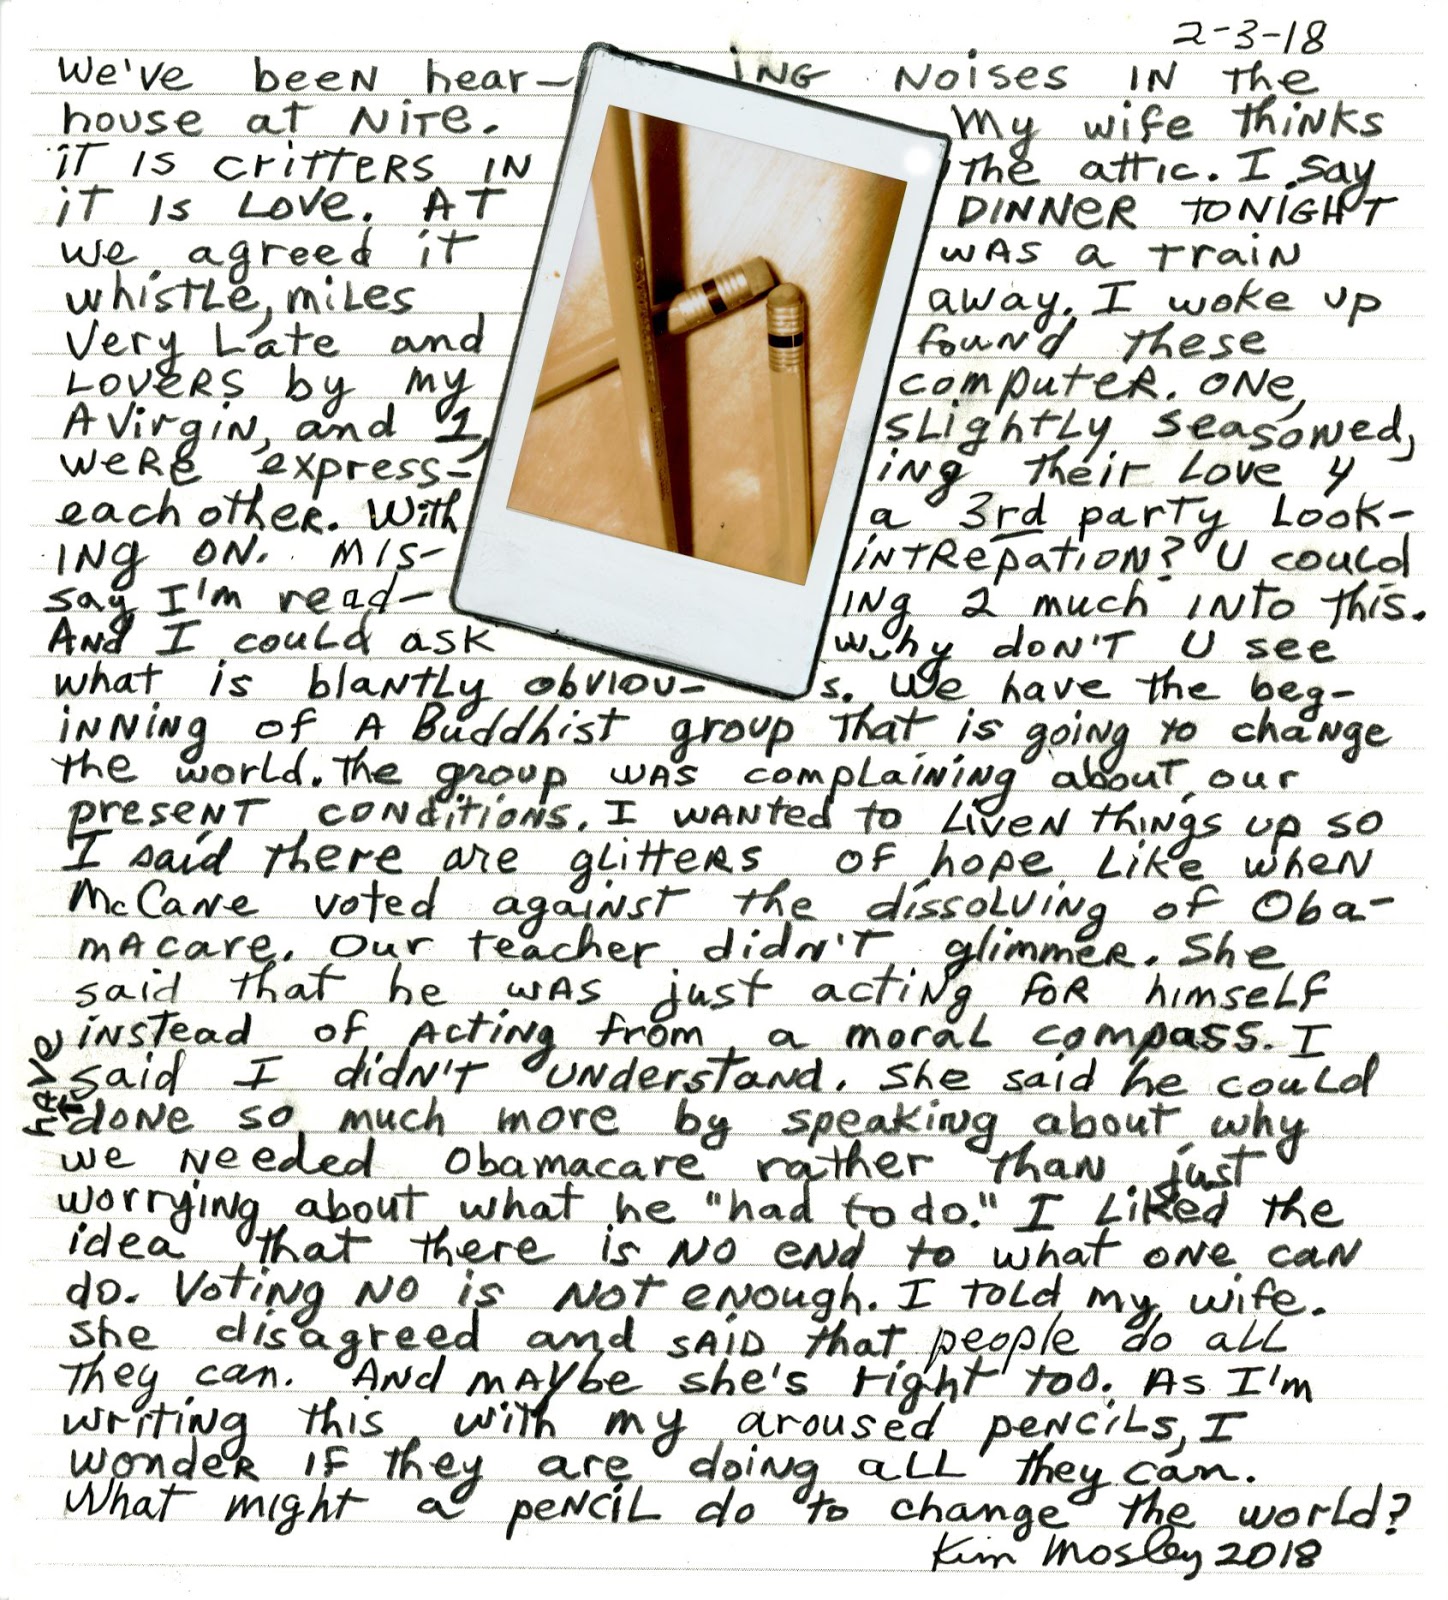 2-3-18
We've been hear- ing noises in the
house at nite. My wife thinks
it is critters in the attic. I say
it is love. At dinner tonight
we agreed it was a train
whistle, miles away. I woke up
very late and found these
lovers by my computer. One,
a virgin, and 1, slightly seasoned,
were express- ing their love 4
each other. With a 3rd party look-
ing on. Mis- intrepation? U could
say I'm read- ing 2 much into this.
And I could ask why don't U see
what is blantly obviou- s. We have the beg-
inning of a Buddhist group that is going to change
the world. The group was complaining about our
present conditions. I wanted to liven things up so
I said there are glitters of hope like when
McCane voted against the dissolving of Oba-
macare. Our teacher didn't glimmer. She
said that he was just acting for himself
instead of acting from a moral compass. I
said I didn't understand. She said he could
have done so much more by speaking about why
we needed Obamacare rather than just
worrying about what he "had to do." I liked the
idea that there is no end to what one can
do. Voting no is not enough. I told my wife.
She disagreed and said that people do all
they can. And maybe she's right too. As I'm
writing this with my aroused pencils, I
wonder if they are doing all they can.
What might a pencil do to change the world?
Kim Mosley 2018